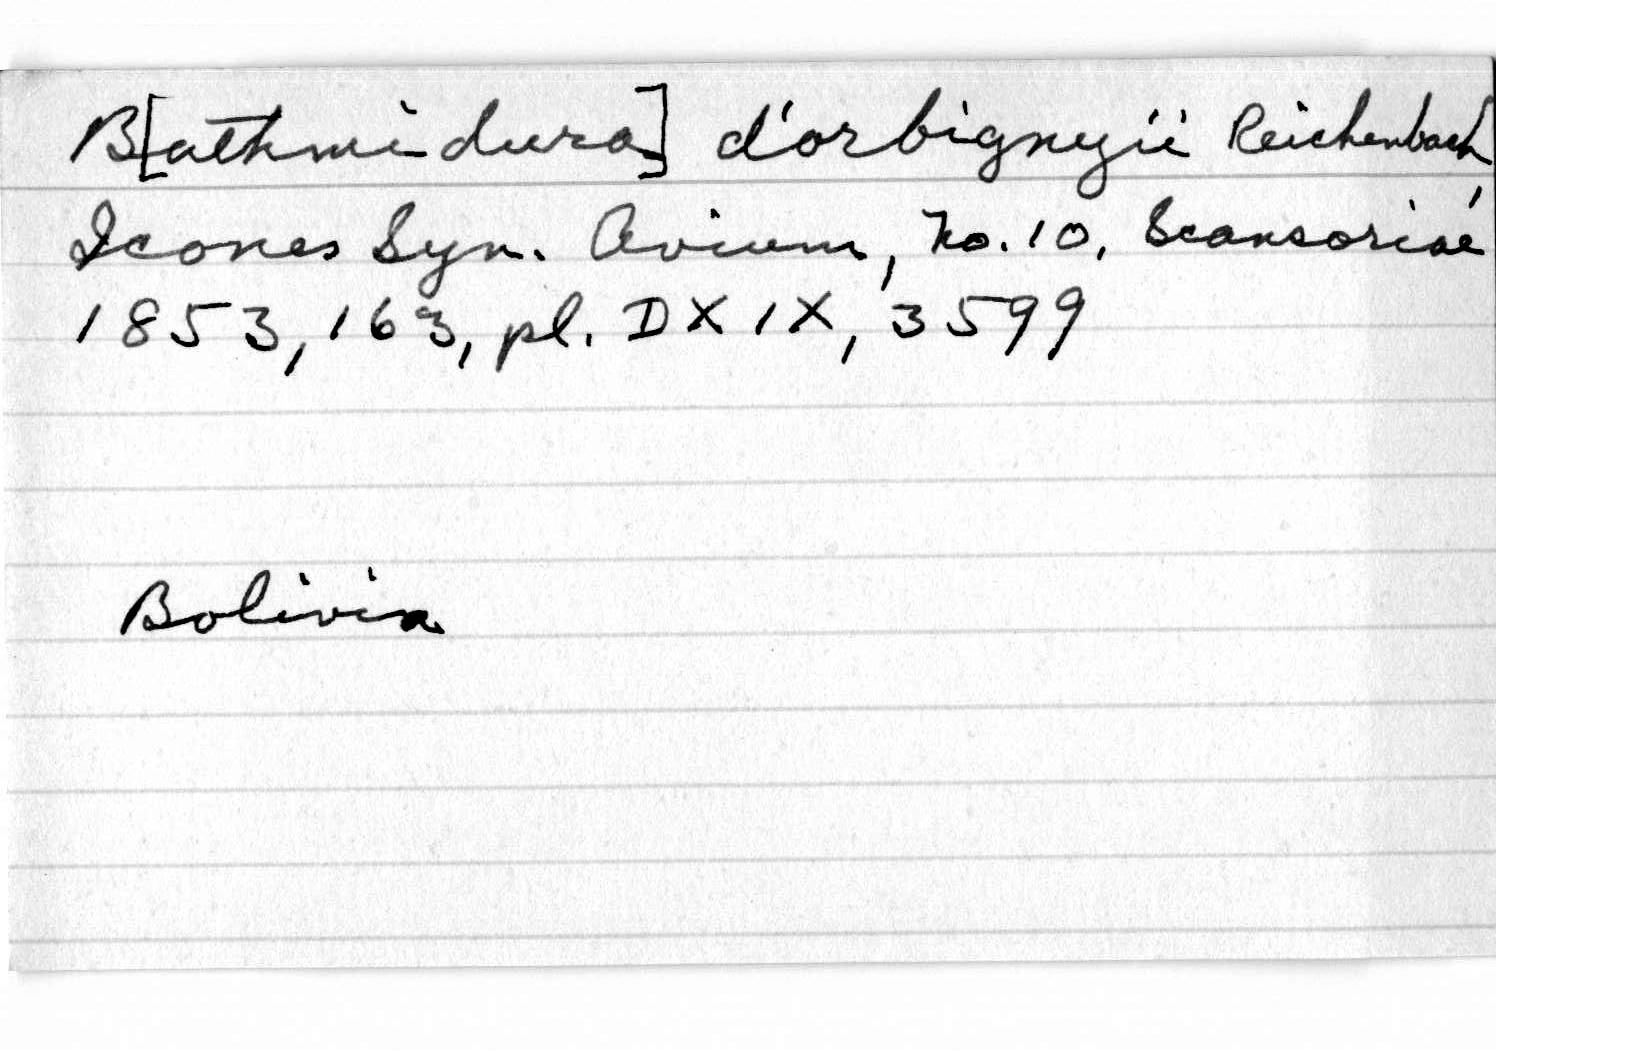 B[athmidura] d'orbignyii Reichenbach
Icones Syn. Avium, No. 10, Scansoriae
1853, 163, pl. DXIX, 3599
Bolivia